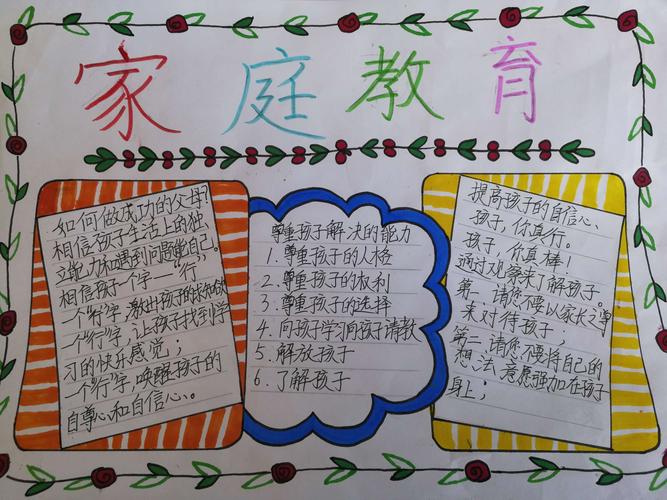 家庭教育
如何做成功的父母?
相信孩子生活上的独
立能力和遇到问题能自己。
相信孩子一个字一"行"
一个"行"字,激出孩子的求知欲
一个"行"字,让孩子找到学
习的快乐感觉;
一个"行"字,唤醒孩子的
自尊心和自信心。
尊重孩子解决的能力
1.尊重孩子的人格
2.尊重孩子的权利
3.尊重孩子的选择
4.向孩子学习向孩子请教
5.解放孩子
6.了解孩子
提高孩子的自信心、
孩子,你真行。
孩子,你真棒!
通过观察来了解孩子。
第一、请您不要以家长之尊
来对待孩子,
第二、请您不要将自己的
想法、意愿强加在孩子
身上;